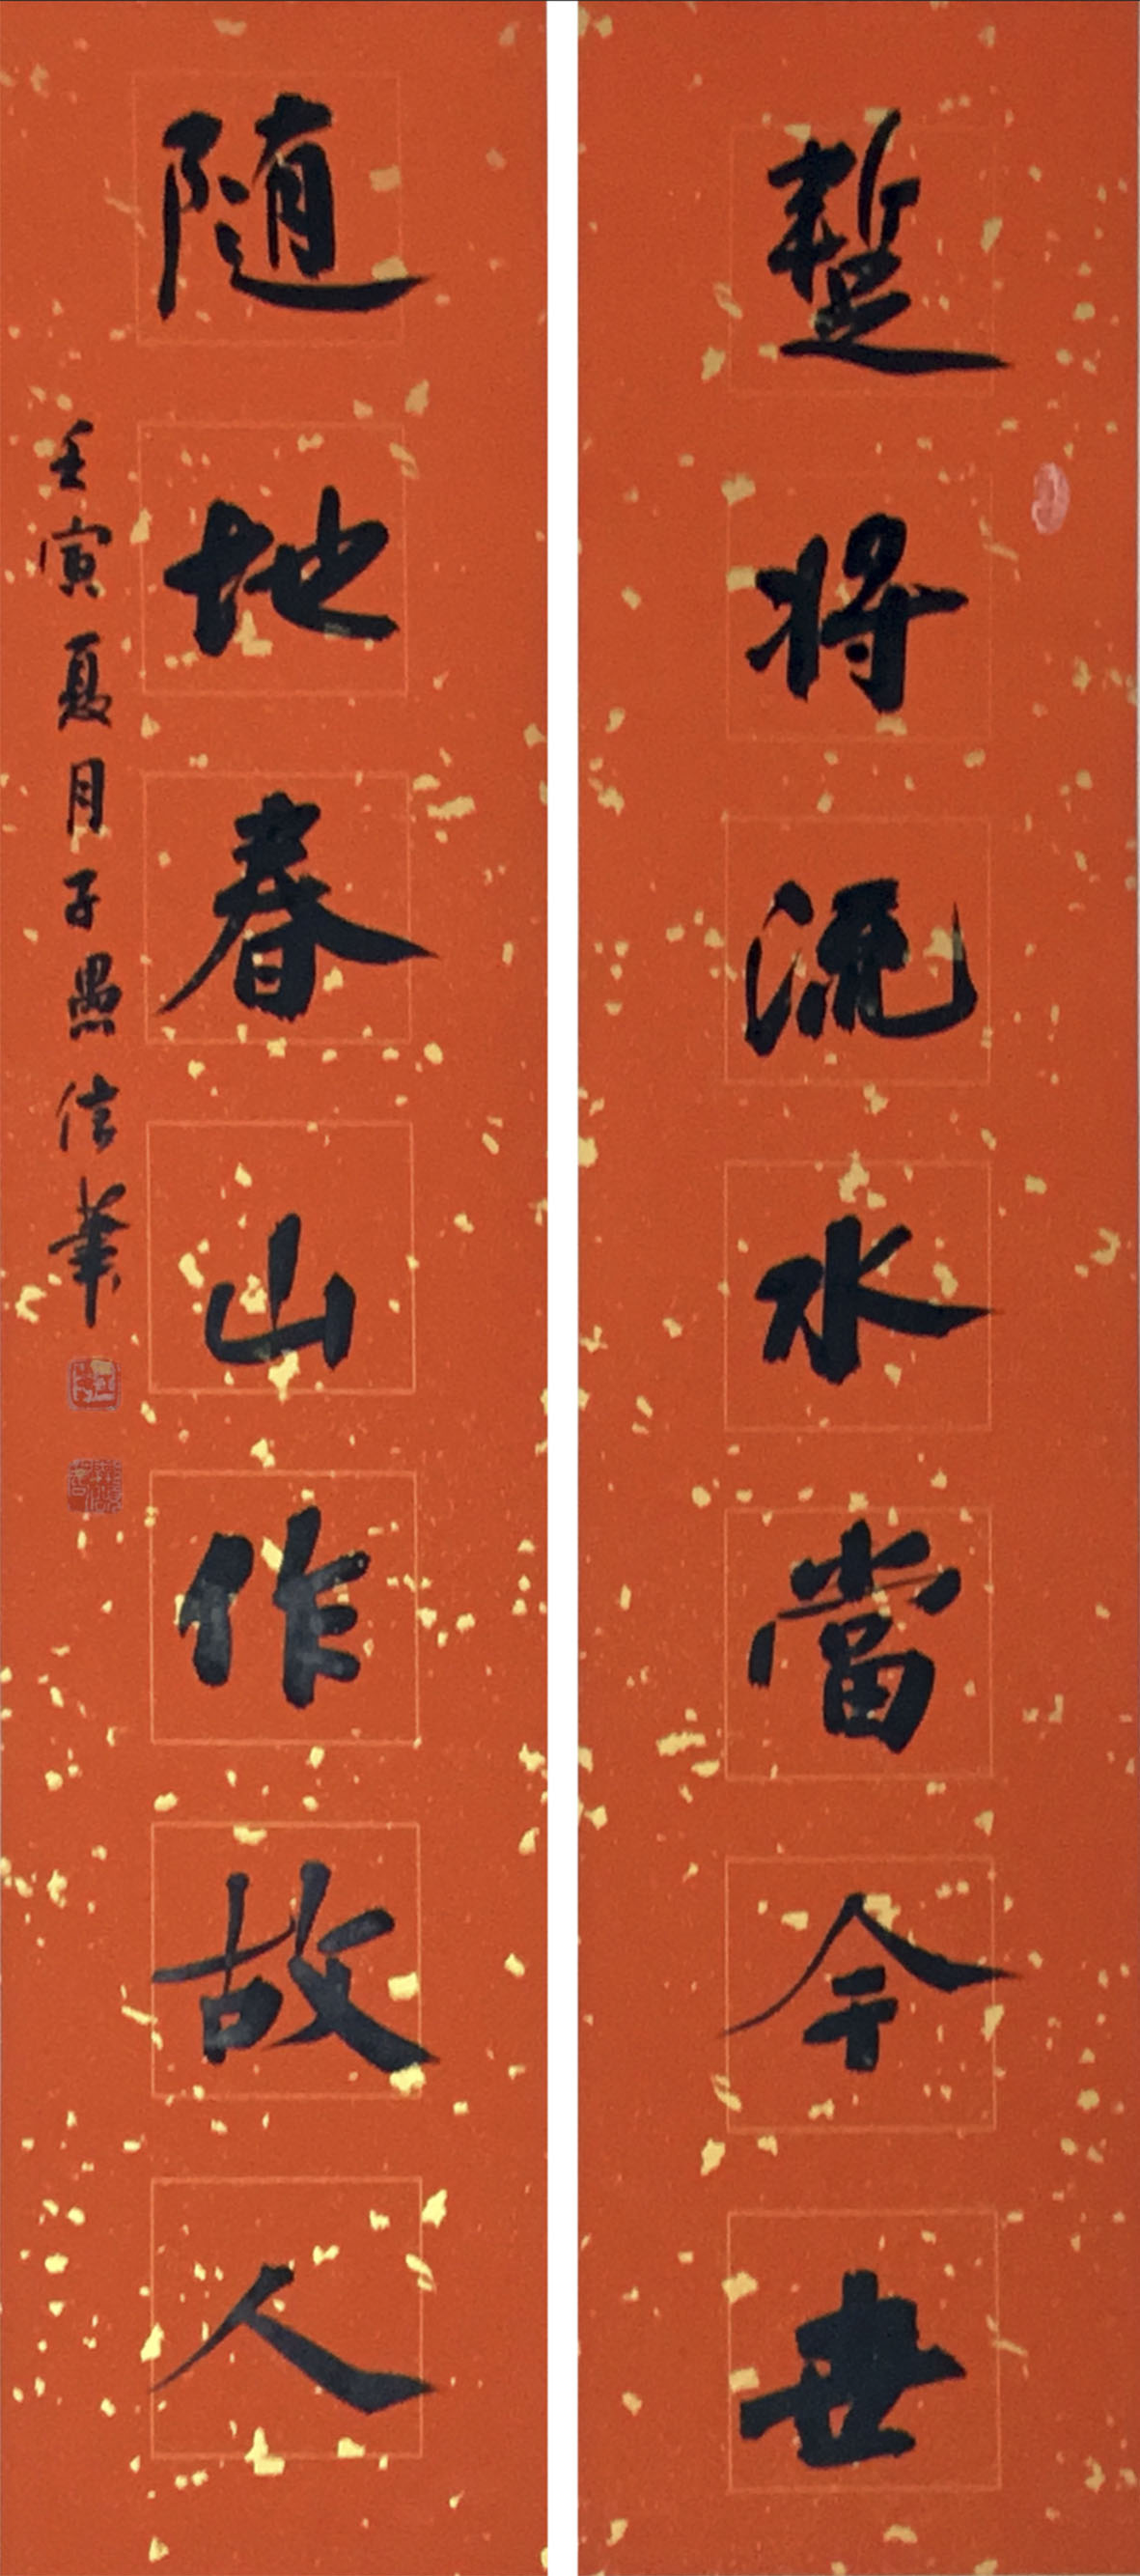 暫将流水當今世
随地春山作故人
壬寅夏月子愚信筆